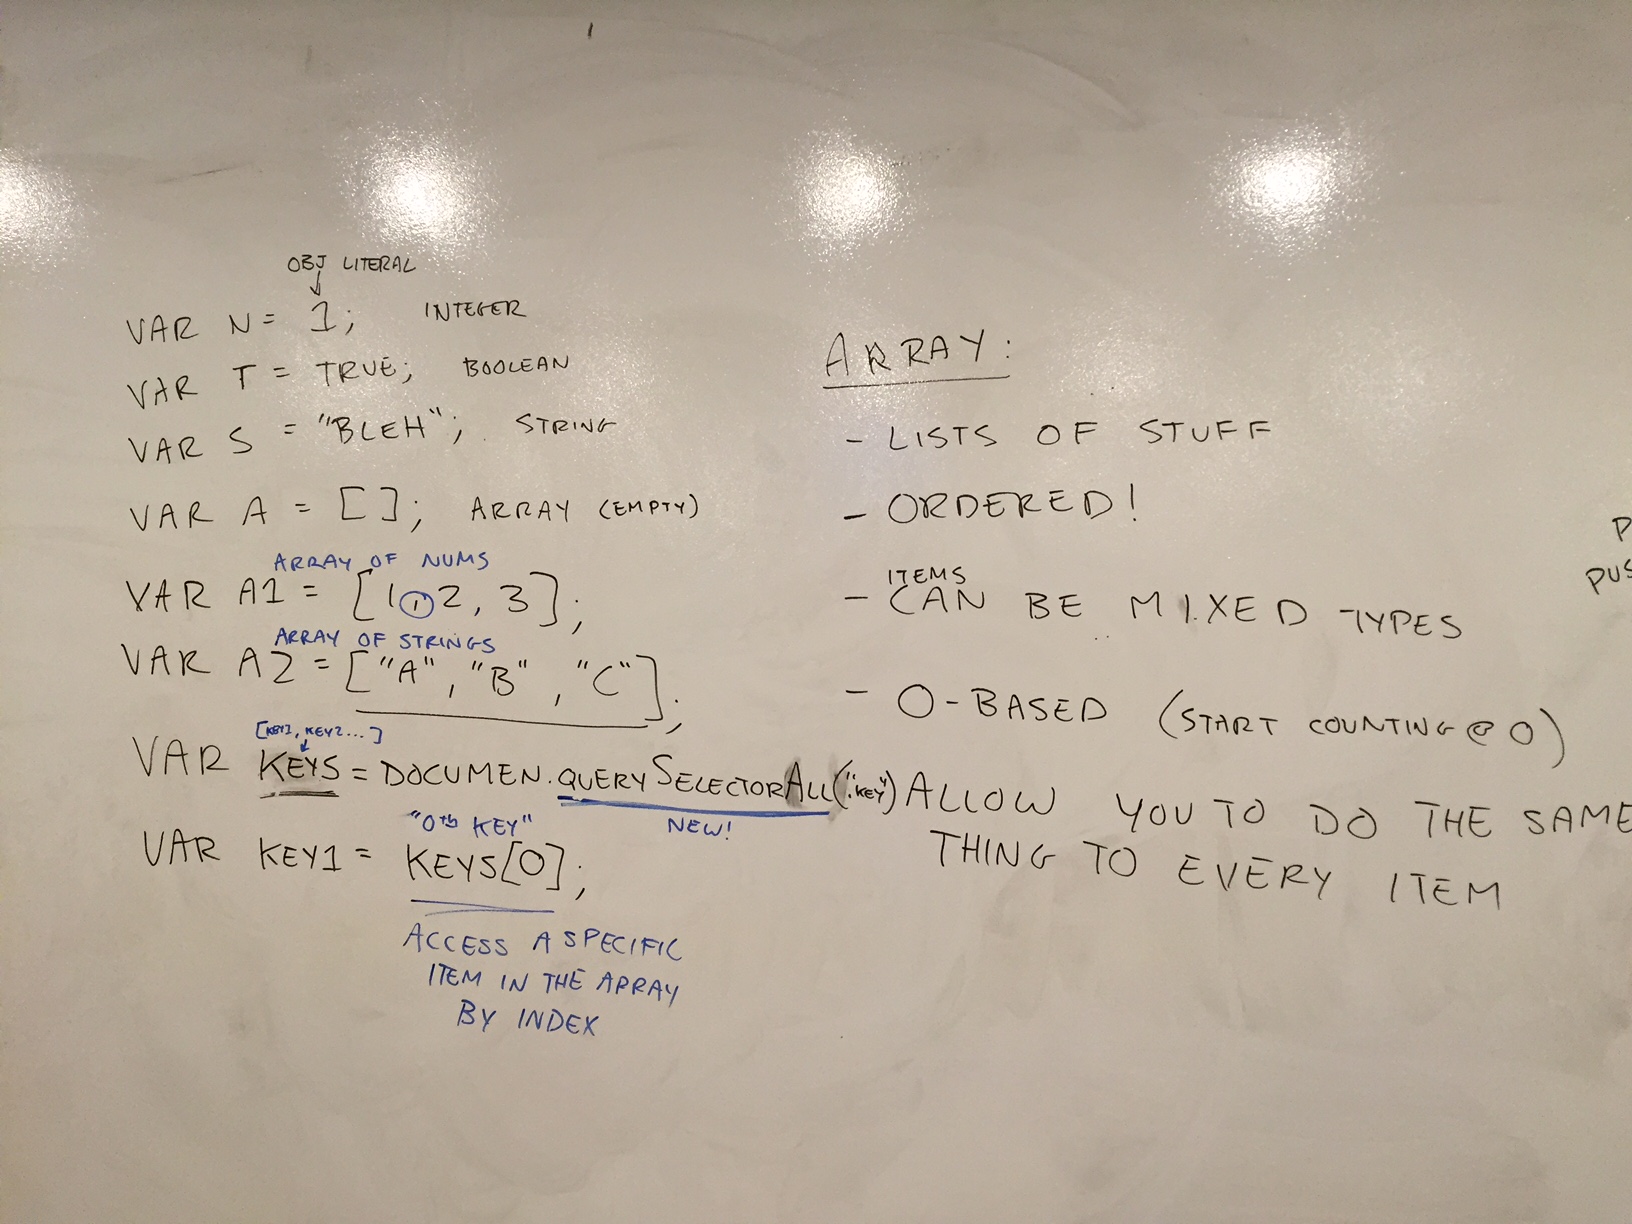 OBJ LITERAL
VAR N = 1; INTEGER
VAR T = TRUE; BOOLEAN
VAR S = "BLEH"; STRING
VAR A = []; ARRAY (EMPTY)
ARRAY OF NUMS
VAR A1 = [1,2,3];
ARRAY OF STRINGS
VAR A2 = ["A","B","C"];
[KEY1, KEY2...]
VAR KEYS = DOCUMEN.QUERYSELECTORALL(".KEY")
NEW!
"0th KEY"
VAR KEY1 = KEYS[0];
ACCESS A SPECIFIC
ITEM IN THE ARRAY
BY INDEX
ARRAY:
- LISTS OF STUFF
- ORDERED!
ITEMS
- CAN BE MIXED TYPES
- 0-BASED (START COUNTING @ 0)
ALLOW YOU TO DO THE SAME
THING TO EVERY ITEM
P
PUS